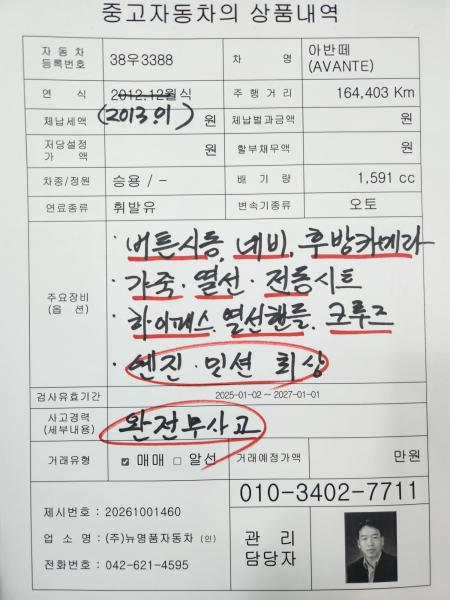 중고자동차의 상품내역
자동차등록번호 38우3388 차 명 아반떼(AVANTE)
연 식 2012.12월식 주행거리 164,403 Km
(2013.01)
체납세액 원 체납벌과금액 원
저당설정가액 원 할부채무액 원
차종/정원 승용 / - 배기량 1,591 cc
연료종류 휘발유 변속기종류 오토
주요장비(옵 션)
· 버튼시동, 네비, 후방카메라
· 가죽·열선·전동시트
· 하이패스, 열선핸들, 크루즈
· 엔진·미션 최상
검사유효기간 2025-01-02 ~ 2027-01-01
사고경력(세부내용) 완전무사고
거래유형 ☑ 매매 □ 알선 거래예정가액 만원
010-3402-7711
제시번호 : 20261001460
업 소 명 : (주)뉴명품자동차 (인)
전화번호 : 042-621-4595
관 리
담당자